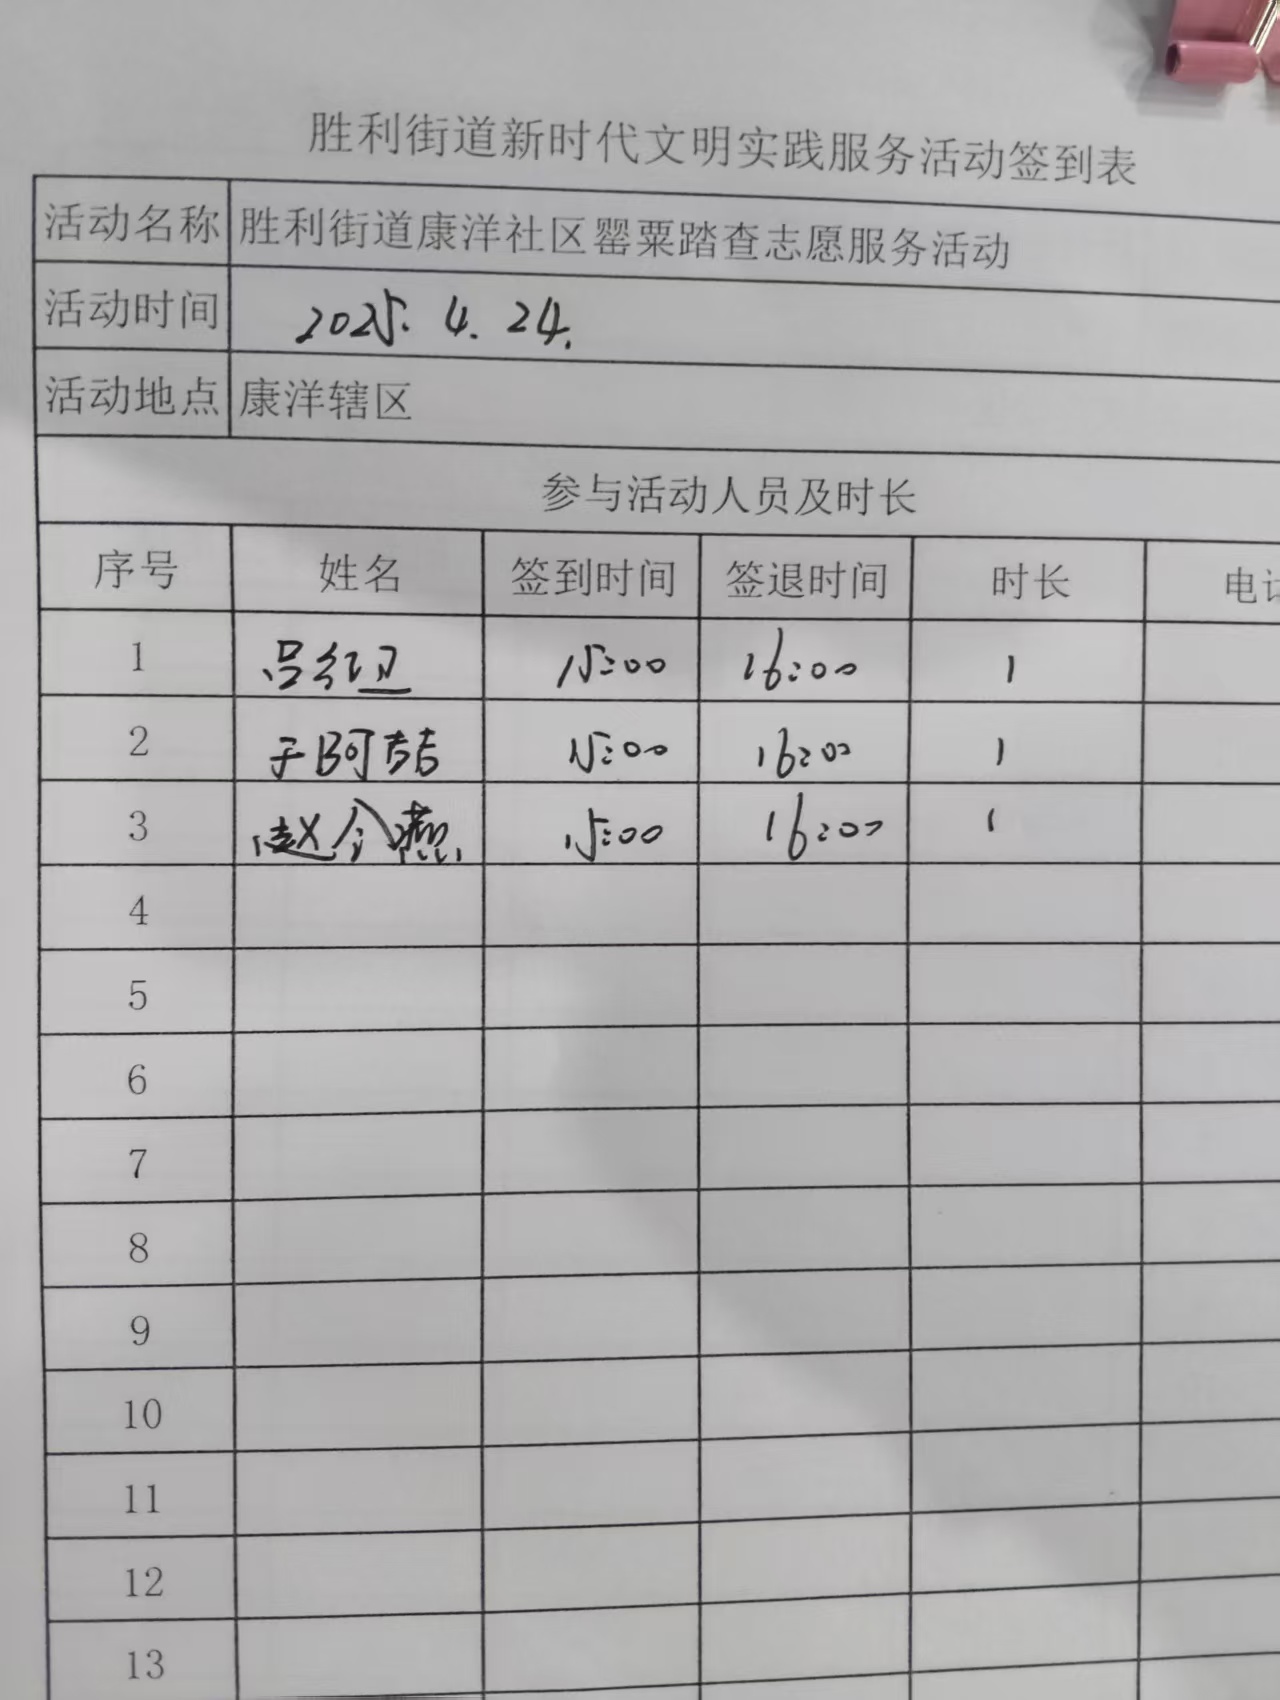 胜利街道新时代文明实践服务活动签到表
活动名称 胜利街道康洋社区罂粟踏查志愿服务活动
活动时间 2025. 4. 24.
活动地点 康洋辖区
参与活动人员及时长
序号 姓名 签到时间 签退时间 时长 电
1 吕红卫 15:00 16:00 1
2 于阿喆 15:00 16:00 1
3 赵令燕 15:00 16:00 1
4
5
6
7
8
9
10
11
12
13